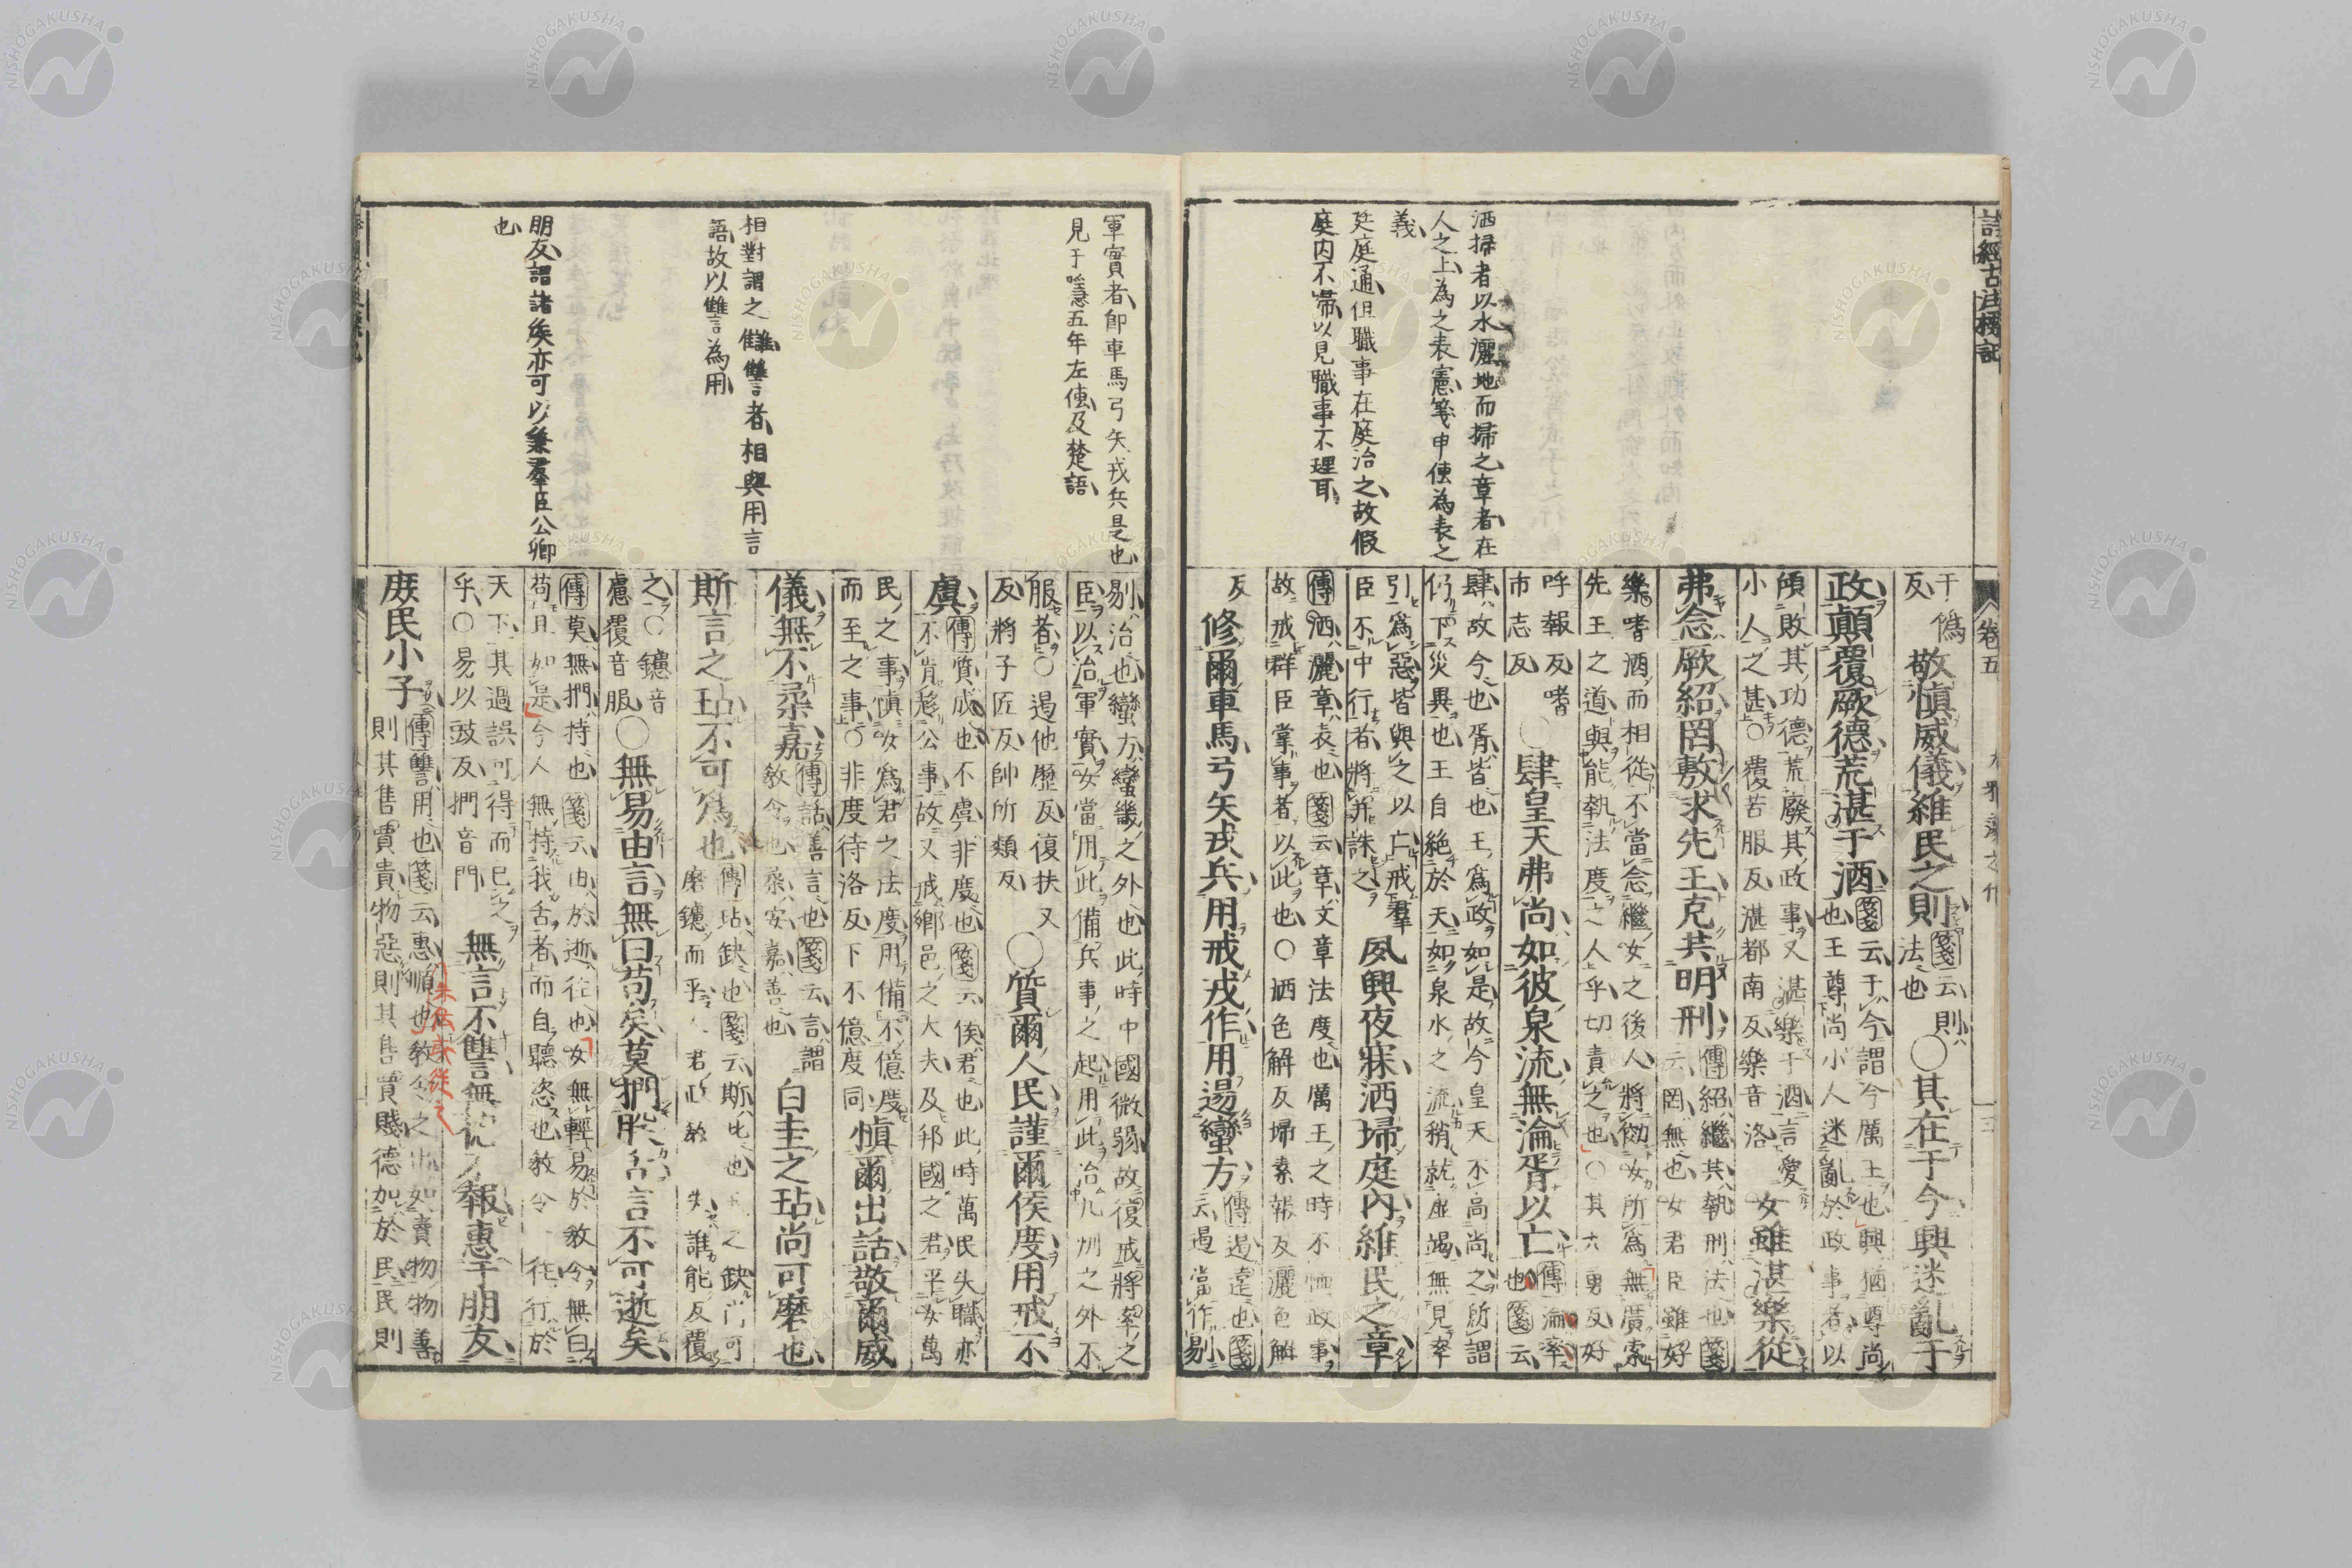 詩經古注標記
卷五
洒掃者以水灑地而掃之章者在
人之上為之表憲箋申傳為表之
義
廷庭通但職事在庭治之故假
庭内不帚以見職事不理耳
于僞
反
敬愼威儀維民之則
箋云則
法也
○其在于今興迷亂于
政顚覆厥德荒湛于酒
箋云于今謂今厲王也興猶尊尚
也王尊尚小人迷亂於政事者以
傾敗其功德荒廢其政事又湛樂于酒言愛
小人之甚○覆芳服反湛都南反樂音洛
女雖湛樂從
弗念厥紹罔敷求先王克共明刑
傳紹繼共執刑法也箋
云罔無也女君臣雖好
樂嗜酒而相從不當念繼女之後人將傚女所爲無廣索
先王之道與能執法度之人乎切責之也○共九勇反好
呼報反嗜
市志反
○肆皇天弗尚如彼泉流無淪胥以亡
傳淪率
也箋云
肆故今也胥皆也王爲政如是故今皇天不高尚之所謂
仍下災異也王自絶於天如泉水之流稍就虛竭無見率
引爲惡皆與之以亡戒羣
臣不中行者將幷誅之
夙興夜寐洒埽庭內維民之章
傳洒灑章表也箋云章文章法度也厲王之時不恤政事
故戒群臣掌事者以此也○洒色解反埽素報反灑色解
反
修爾車馬弓矢戎兵用戒戎作用逷蠻方
傳逷遠也箋
云逷當作剔
軍實者即車馬弓矢戎兵是也
見于隱五年左傳及楚語
相對謂之讎讎言者相與用言
語故以讎言為用
朋友謂諸侯亦可以兼羣臣公卿
也
剔治也蠻方蠻畿之外也此時中國微弱故復戒將率之
臣以治軍實女當用此備兵事之起用此治九州之外不
服者○逷他歷反復扶又
反將子匠反帥所類反
○質爾人民謹爾侯度用戒不
虞
傳質成也不虞非度也箋云侯君也此時萬民失職亦
不肯趍公事故又戒鄉邑之大夫及邦國之君平女萬
民之事愼女爲君之法度用備不億度
而至之事○非度待洛反下不億度同
愼爾出話敬爾威
儀無不柔嘉
傳話善言也箋云言謂
敎令也柔安嘉善也
白圭之玷尚可磨也
斯言之玷不可爲也
傳玷缺也箋云斯此也玉之缺尚可
磨鑢而平人君政敎失誰能反覆
之○鑢音
慮覆音服
○無易由言無曰苟矣莫捫朕舌言不可逝矣
傳莫無捫持也箋云由於逝往也女無輕易於敎令無曰
苟且如是今人無持我舌者而自聽恣也敎令一往行於
天下其過誤可得而已之
乎○易以豉反捫音門
無言不讎無德不報惠于朋友
庶民小子
傳讎用也箋云惠順也敎令之出如賣物物善
則其售賈貴物惡則其售賈賤德加於民民則